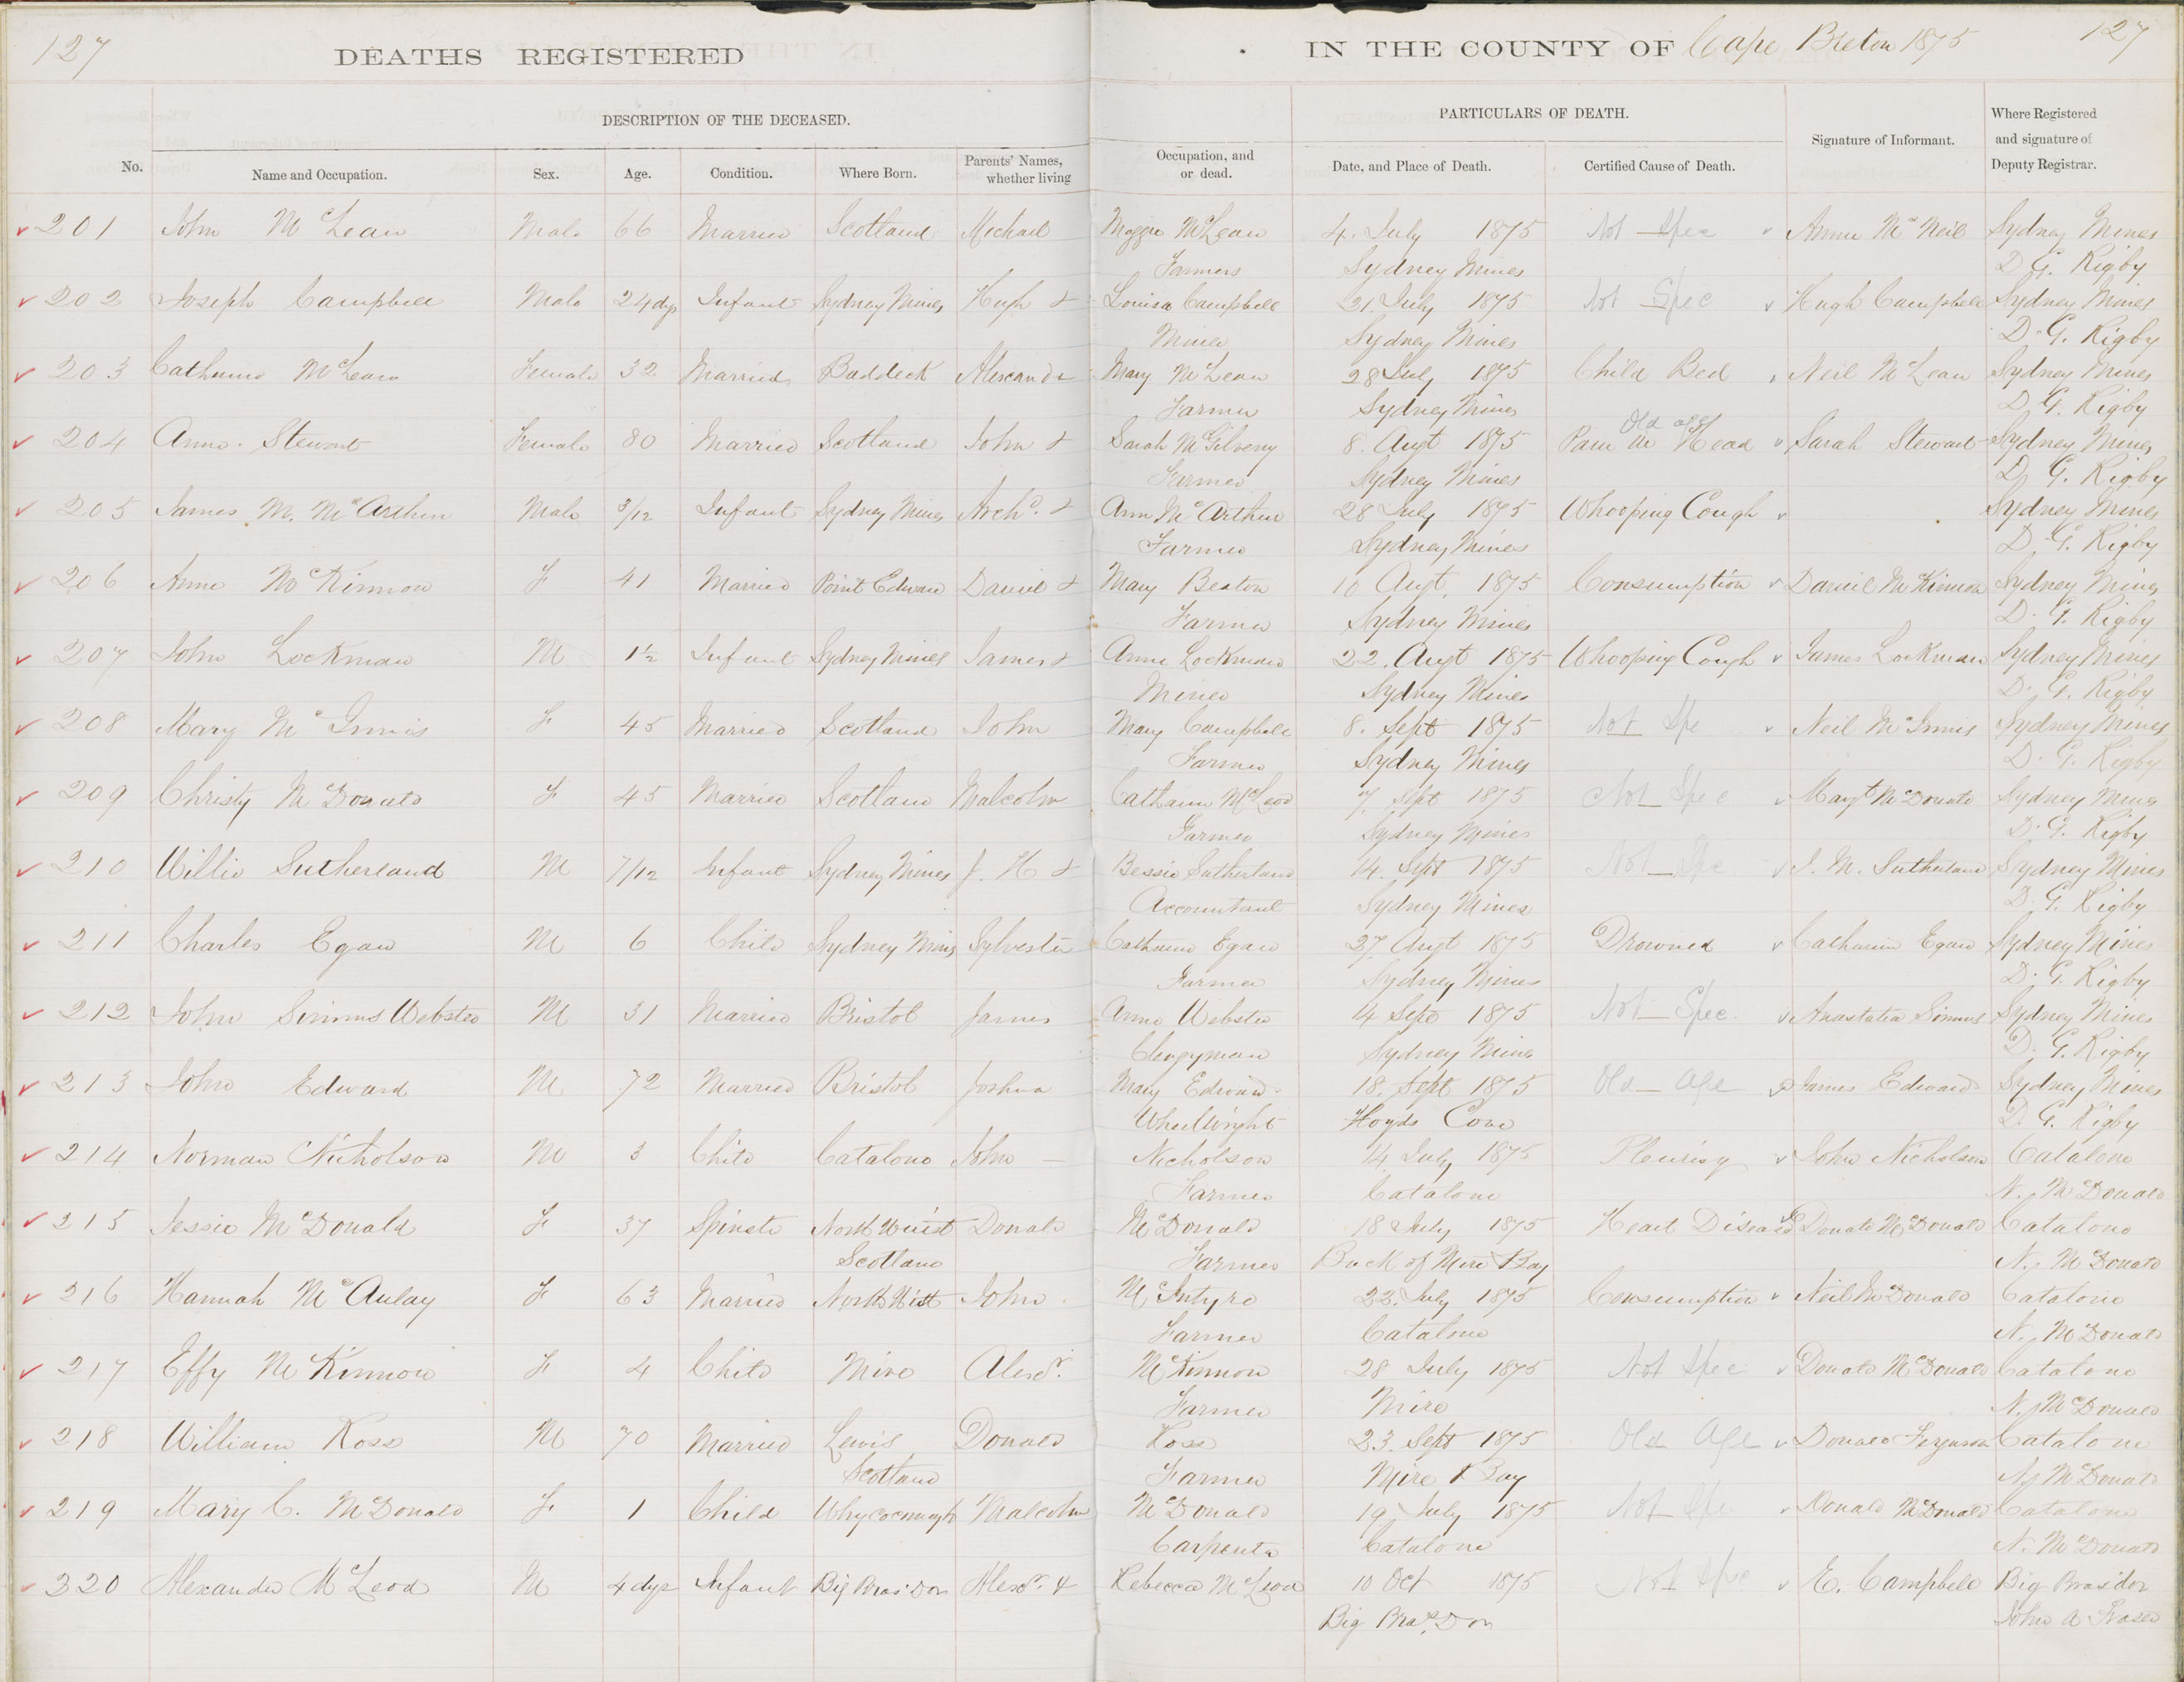 127
DEATHS REGISTERED
IN THE COUNTY OF Cape Breton 1875
127
DESCRIPTION OF THE DECEASED.
PARTICULARS OF DEATH.
No.
Name and Occupation.
Sex.
Age.
Condition.
Where Born.
Parents' Names, whether living
Occupation, and or dead.
Date, and Place of Death.
Certified Cause of Death.
Signature of Informant.
Where Registered and signature of Deputy Registrar.
201 John McLean Male 66 Married Scotland Michael Maggie McLean 4. July 1875 Not Spec Annie McNeil Sydney Mines
Farmers Sydney Mines D. G. Rigby
202 Joseph Campbell Male 24 dys Infant Sydney Mines Hugh & Louisa Campbell 21 July 1875 Not Spec Hugh Campbell Sydney Mines
Miner Sydney Mines D. G. Rigby
203 Catharine McLean Female 32 Married Baddeck Alexander Mary McLean 28 July 1875 Child Bed Neil McLean Sydney Mines
Farmer Sydney Mines D. G. Rigby
Old age
204 Anne Stewart Female 80 Married Scotland John & Sarah McGilvery 8. Augt 1875 Pain in Head Sarah Stewart Sydney Mines
Farmer Sydney Mines D. G. Rigby
205 James M. McArthur Male 3/12 Infant Sydney Mines Archd. & Ann McArthur 28 July 1875 Whooping Cough Sydney Mines
Farmer Sydney Mines D. G. Rigby
206 Anne McKinnon F 41 Married Point Edward Daniel & Mary Beaton 10 Augt. 1875 Consumption Daniel McKinnon Sydney Mines
Farmer Sydney Mines D. G. Rigby
207 John Lockman M 1½ Infant Sydney Mines James & Anne Lockman 22. Augt 1875 Whooping Cough James Lockman Sydney Mines
Miner Sydney Mines D. G. Rigby
208 Mary McInnis F 45 Married Scotland John Mary Campbell 8. Sept 1875 Not Spe Neil McInnis Sydney Mines
Farmer Sydney Mines D. G. Rigby
209 Christy McDonald F 45 Married Scotland Malcolm Catharine McLeod 7. Sept 1875 Not Spec Margt McDonald Sydney Mines
Farmer Sydney Mines D. G. Rigby
210 Willie Sutherland M 7/12 Infant Sydney Mines J. H & Bessie Sutherland 14. Sept 1875 Not Spe J. M. Sutherland Sydney Mines
Accountant Sydney Mines D. G. Rigby
211 Charles Egan M 6 Child Sydney Mines Sylvester Catharine Egan 27. Augt 1875 Drowned Catharine Egan Sydney Mines
Farmer Sydney Mines D. G. Rigby
212 John Simms Webster M 31 Married Bristol James Anne Webster 14 Sept 1875 Not Spec. Anastatia Simms Sydney Mines
Clergyman Sydney Mines D. G. Rigby
213 John Edward M 72 Married Bristol Joshua Mary Edward 18. Sept 1875 Old Age James Edward Sydney Mines
Wheelwright Cove D. G. Rigby
214 Norman Nicholson M 3 Child Catalone John Nicholson 14 July 1875 Pleurisy John Nicholson Catalone
Farmer Catalone N. McDonald
215 Jessie McDonald F 37 Spinster North Uist Donald McDonald 18 July 1875 Heart Disease Donald McDonald Catalone
Scotland Farmer Back of Mire Bay N. McDonald
216 Hannah McAulay F 63 Married North Uist John McIntyre 22. July 1875 Consumption Neil McDonald Catalone
Farmer Catalone N. McDonald
217 Effy McKinnon F 4 Child Mire Alexr. McKinnon 28 July 1875 Not Spec Donald McDonald Catalone
Farmer Mire N. McDonald
218 William Ross M 70 Married Lewis Donald Ross 23. Sept 1875 Old Age Donald Ferguson Catalone
Scotland Farmer Mire Bay N. McDonald
219 Mary C. McDonald F 1 Child Whycocomagh Malcolm McDonald 19 July 1875 Not Spe Donald McDonald Catalone
Carpenter Catalone N. McDonald
220 Alexander McLeod M 4 dys Infant Big Bras'Dor Alexr. & Rebecca McLeod 10 Oct 1875 Not Spec E. Campbell Big Bras'dor
Big Bras. Dor John A Fraser